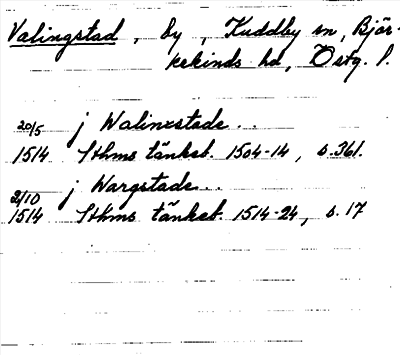 Valingstad, by, Kuddby sn, Björ-
kekinds hd, Östg. l.
20/5 j Walinxstade..
1514 Sthms tänkeb. 1504-14, s. 361.
2/10 j Wargstade..
1514 Sthms tänkeb. 1514-24, s. 17